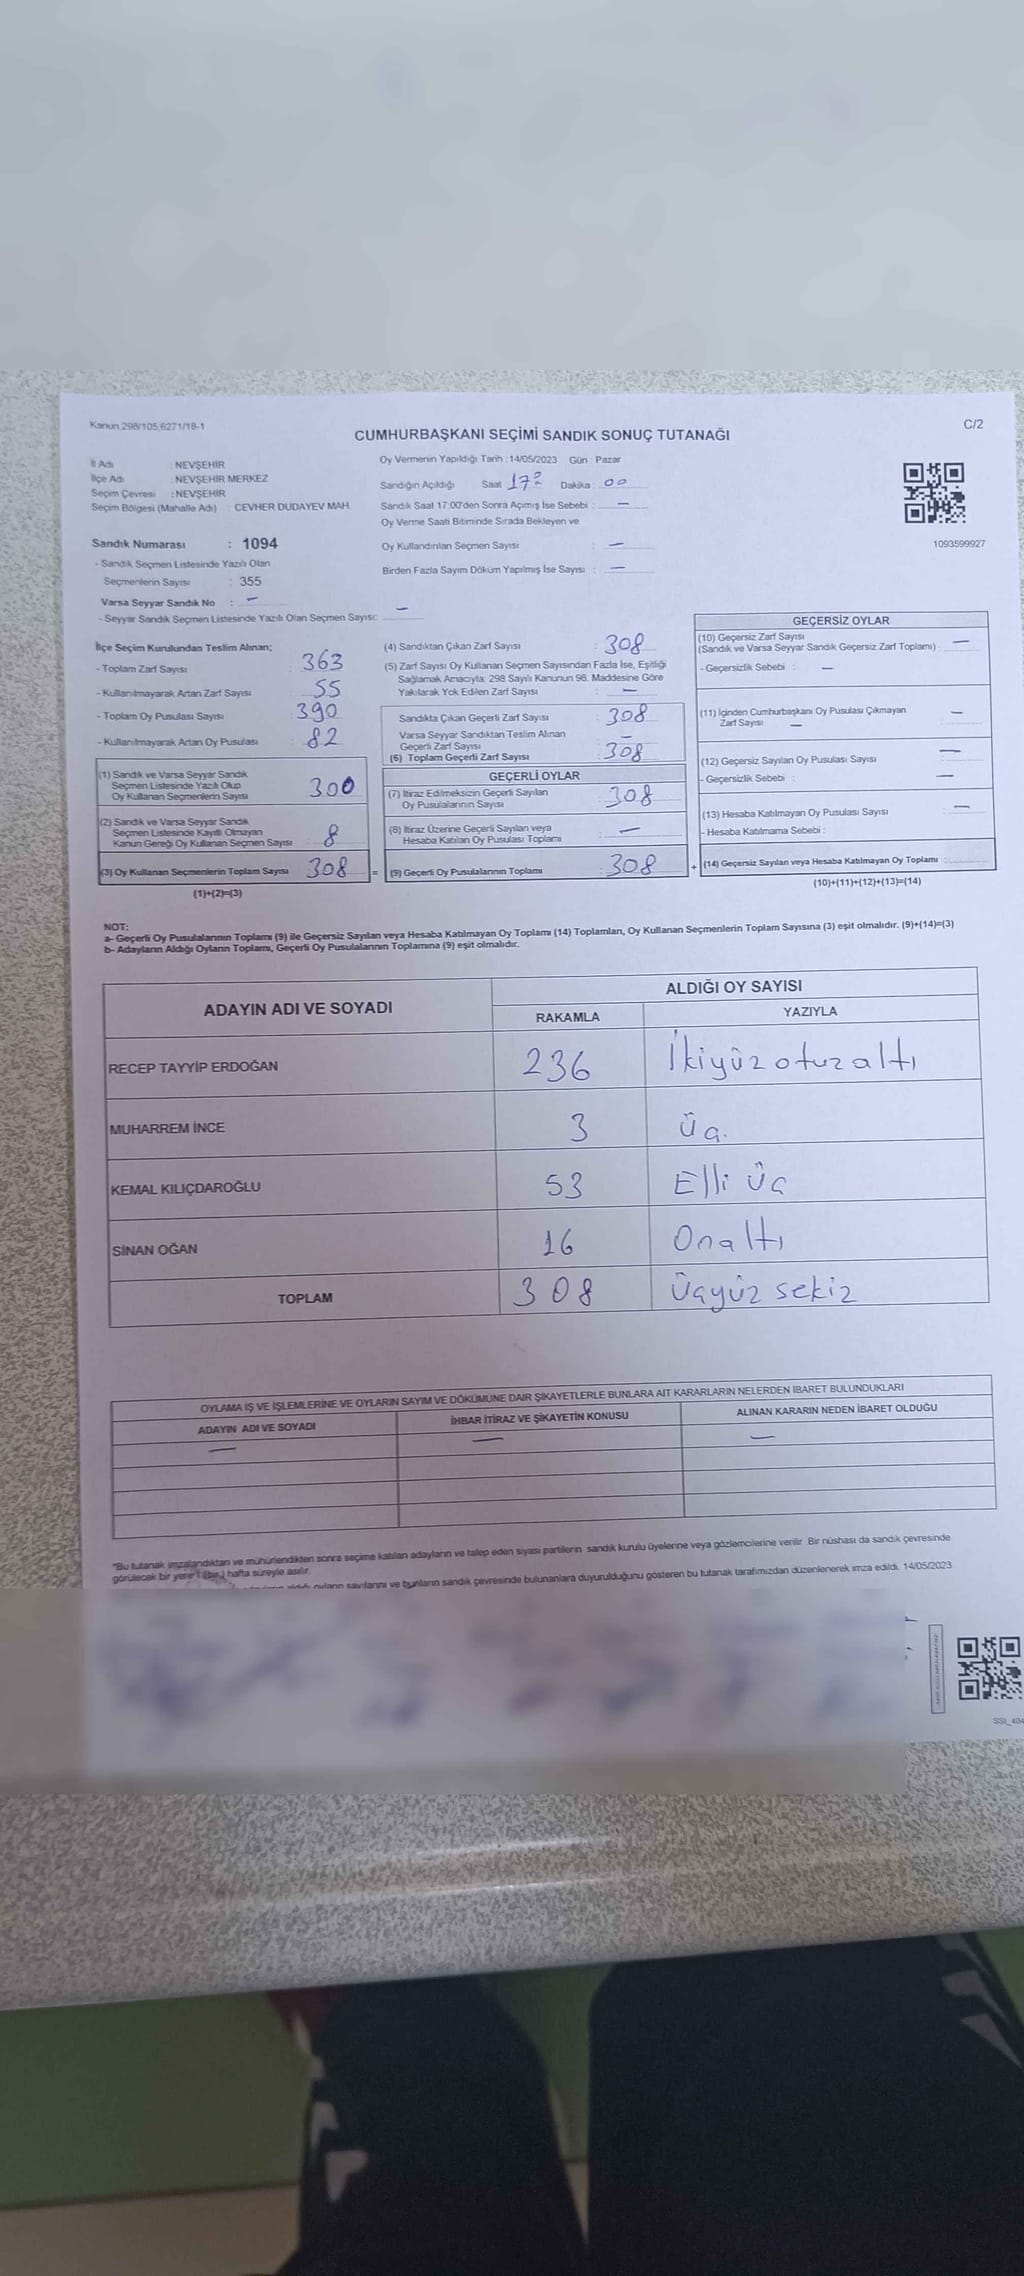 Kanun,298/105,6271/18-1
C/2
CUMHURBAŞKANI SEÇİMİ SANDIK SONUÇ TUTANAĞI
İl Adı : NEVŞEHİR
İlçe Adı : NEVŞEHİR MERKEZ
Seçim Çevresi : NEVŞEHİR
Seçim Bölgesi (Mahalle Adı) : CEVHER DUDAYEV MAH.
Sandık Numarası : 1094
- Sandık Seçmen Listesinde Yazılı Olan
Seçmenlerin Sayısı : 355
Varsa Seyyar Sandık No : —
- Seyyar Sandık Seçmen Listesinde Yazılı Olan Seçmen Sayısı: —
Oy Vermenin Yapıldığı Tarih : 14/05/2023 Gün : Pazar
Sandığın Açıldığı Saat 17 Dakika : 00
Sandık Saat 17:00'den Sonra Açımış İse Sebebi : —
Oy Verme Saati Bitiminde Sırada Bekleyen ve
Oy Kullandırılan Seçmen Sayısı : —
Birden Fazla Sayım Döküm Yapılmış İse Sayısı : —
1093599927
İlçe Seçim Kurulundan Teslim Alınan;
- Toplam Zarf Sayısı : 363
- Kullanılmayarak Artan Zarf Sayısı : 55
- Toplam Oy Pusulası Sayısı : 390
- Kullanılmayarak Artan Oy Pusulası : 82
(1) Sandık ve Varsa Seyyar Sandık
Seçmen Listesinde Yazılı Olup
Oy Kullanan Seçmenlerin Sayısı 300
(2) Sandık ve Varsa Seyyar Sandık
Seçmen Listesinde Kayıtlı Olmayan
Kanun Gereği Oy Kullanan Seçmen Sayısı 8
(3) Oy Kullanan Seçmenlerin Toplam Sayısı 308 =
(1)+(2)=(3)
(4) Sandıktan Çıkan Zarf Sayısı : 308
(5) Zarf Sayısı Oy Kullanan Seçmen Sayısından Fazla İse, Eşitliği
Sağlamak Amacıyla; 298 Sayılı Kanunun 98. Maddesine Göre
Yakılarak Yok Edilen Zarf Sayısı : —
Sandıkta Çıkan Geçerli Zarf Sayısı : 308
Varsa Seyyar Sandıktan Teslim Alınan
Geçerli Zarf Sayısı : —
(6) Toplam Geçerli Zarf Sayısı : 308
GEÇERLİ OYLAR
(7) İtiraz Edilmeksizin Geçerli Sayılan
Oy Pusulalarının Sayısı : 308
(8) İtiraz Üzerine Geçerli Sayılan veya
Hesaba Katılan Oy Pusulası Toplamı : —
(9) Geçerli Oy Pusulalarının Toplamı : 308 +
GEÇERSİZ OYLAR
(10) Geçersiz Zarf Sayısı
(Sandık ve Varsa Seyyar Sandık Geçersiz Zarf Toplamı) : —
- Geçersizlik Sebebi : —
(11) İçinden Cumhurbaşkanı Oy Pusulası Çıkmayan
Zarf Sayısı — —
(12) Geçersiz Sayılan Oy Pusulası Sayısı —
- Geçersizlik Sebebi : —
(13) Hesaba Katılmayan Oy Pusulası Sayısı : —
- Hesaba Katılmama Sebebi :
(14) Geçersiz Sayılan veya Hesaba Katılmayan Oy Toplamı :
(10)+(11)+(12)+(13)=(14)
NOT:
a- Geçerli Oy Pusulalarının Toplamı (9) ile Geçersiz Sayılan veya Hesaba Katılmayan Oy Toplamı (14) Toplamları, Oy Kullanan Seçmenlerin Toplam Sayısına (3) eşit olmalıdır. (9)+(14)=(3)
b- Adayların Aldığı Oyların Toplamı, Geçerli Oy Pusulalarının Toplamına (9) eşit olmalıdır.
ADAYIN ADI VE SOYADI
ALDIĞI OY SAYISI
RAKAMLA YAZIYLA
RECEP TAYYİP ERDOĞAN 236 İkiyüzotuzaltı
MUHARREM İNCE 3 Üç.
KEMAL KILIÇDAROĞLU 53 Elli Üç
SİNAN OĞAN 16 Onaltı
TOPLAM 308 Üçyüz sekiz
OYLAMA İŞ VE İŞLEMLERİNE VE OYLARIN SAYIM VE DÖKÜMÜNE DAİR ŞİKAYETLERLE BUNLARA AİT KARARLARIN NELERDEN İBARET BULUNDUKLARI
ADAYIN ADI VE SOYADI İHBAR İTİRAZ VE ŞİKAYETİN KONUSU ALINAN KARARIN NEDEN İBARET OLDUĞU
— — —
*Bu tutanak imzalandıktan ve mühürlendikten sonra seçime katılan adayların ve talep eden siyasi partilerin sandık kurulu üyelerine veya gözlemcilerine verilir. Bir nüshası da sandık çevresinde
görülecek bir yere 1 (bir) hafta süreyle asılır.
aldığı oyların sayılarını ve bunların sandık çevresinde bulunanlara duyurulduğunu gösteren bu tutanak tarafımızdan düzenlenerek imza edildi. 14/05/2023